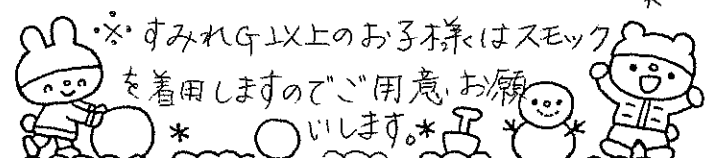 ※すみれG以上のお子様はスモック
を着用しますのでご用意お願
いします。